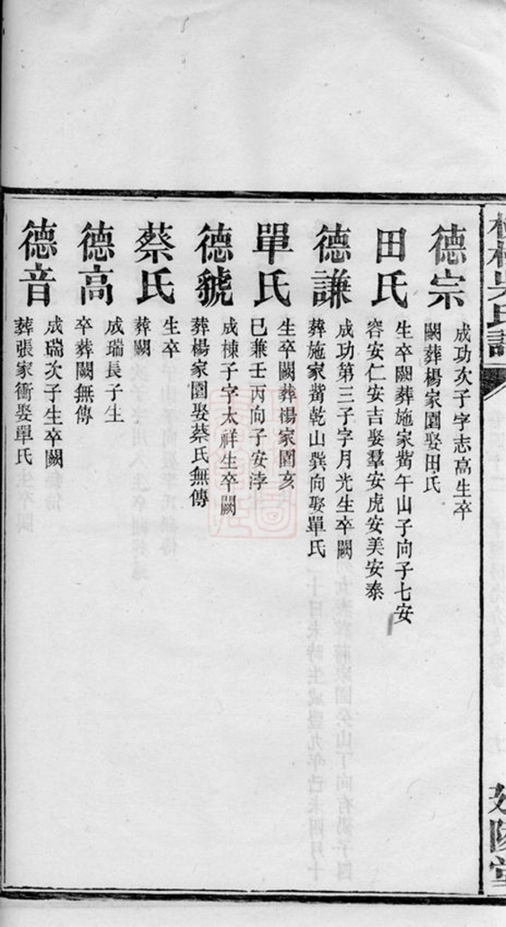 德宗
成功次子字志高生卒
闕葬楊家園娶田氏
田氏
生卒闕葬施家嘴午山子向子七安
容安仁安吉娶羣安虎安美安泰
德謙
成功第三子字月光生卒闕
葬施家嘴乾山巽向娶單氏
單氏
生卒闕葬楊家園亥
巳兼壬丙向子安浡
德號
成棟子字太祥生卒闕
葬楊家園娶蔡氏無傳
蔡氏
生卒
葬闕
德高
成瑞長子生
卒葬闕無傳
德音
成瑞次子生卒闕
葬張家衝娶單氏